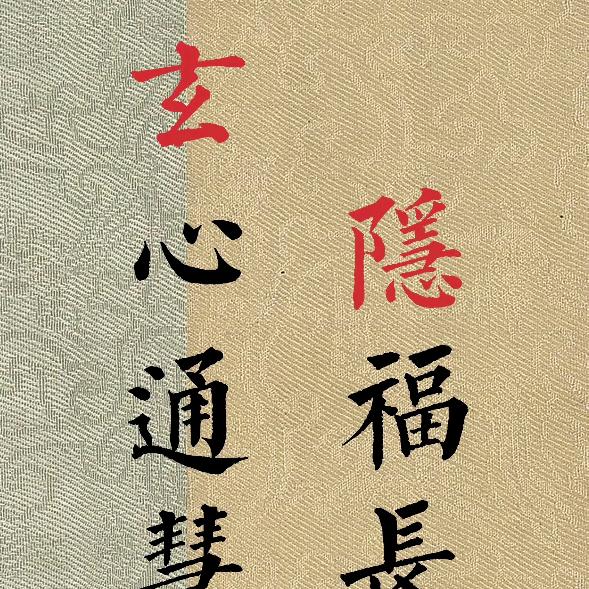 隱福長
玄心通彗